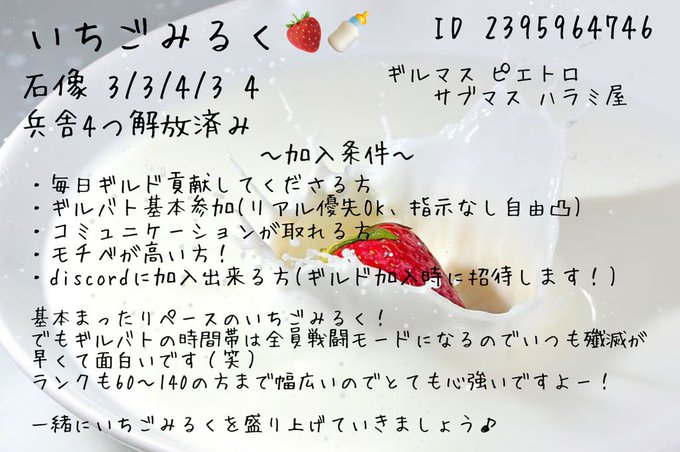 いちごみるく🍓🍼
ID 2395964746
石像 3/3/4/3 4
ギルマス ピエトロ
サブマス ハラミ屋
兵舎4つ解放済み
〜加入条件〜
・毎日ギルド貢献してくださる方
・ギルバト基本参加(リアル優先OK、指示なし自由凸)
・コミュニケーションが取れる方
・モチベが高い方!
・discordに加入出来る方(ギルド加入時に招待します!)
基本まったりペースのいちごみるく!
でもギルバトの時間帯は全員戦闘モードになるのでいつも殲滅が
早くて面白いです(笑)
ランクも60〜140の方まで幅広いのでとても心強いですよー!
一緒にいちごみるくを盛り上げていきましょう♪